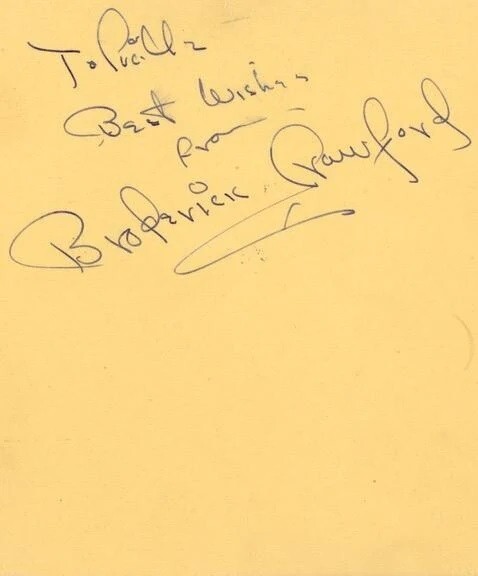 To
Best Wishes
from
Broderick Crawford